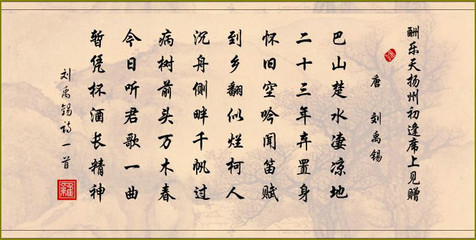 酬乐天扬州初逢席上见赠
唐 刘禹锡
巴山楚水凄凉地
二十三年弃置身
怀旧空吟闻笛赋
到乡翻似烂柯人
沉舟侧畔千帆过
病树前头万木春
今日听君歌一曲
暂凭杯酒长精神
刘禹锡诗一首